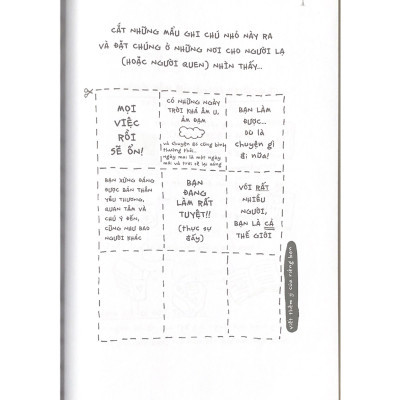 CẮT NHỮNG MẨU GHI CHÚ NHỎ NÀY RA
VÀ ĐẶT CHÚNG Ở NHỮNG NƠI CHO NGƯỜI LẠ
(HOẶC NGƯỜI QUEN) NHÌN THẤY...
MỌI
VIỆC
RỒI
SẼ ỔN!
CÓ NHỮNG NGÀY
TRỜI KHÁ ÂM U,
ẢM ĐẠM
và chuyện đó cũng bình
thường thôi...
ngày mai là một ngày
mới và trời sẽ lại sáng
BẠN LÀM
ĐƯỢC...
DÙ LÀ
CHUYỆN GÌ
ĐI NỮA!
BẠN XỨNG ĐÁNG
ĐƯỢC BẢN THÂN
YÊU THƯƠNG,
QUAN TÂM VÀ
CHÚ Ý ĐẾN,
CŨNG NHƯ BAO
NGƯỜI KHÁC
BẠN
ĐANG
LÀM RẤT
TUYỆT!!
(thực sự
đấy)
VỚI RẤT
NHIỀU
NGƯỜI,
BẠN LÀ CẢ
THẾ GIỚI
viết thêm ý của riêng bạn